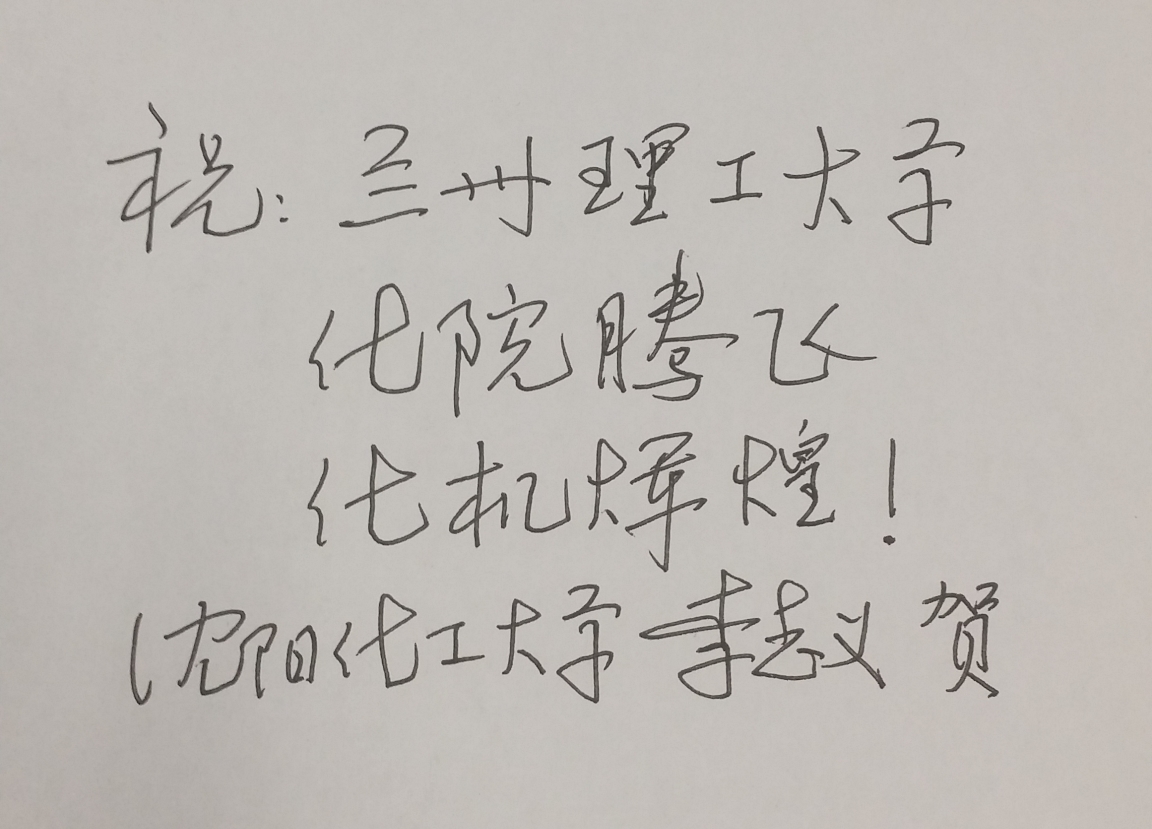 祝:兰州理工大学
化院腾飞
化机辉煌!
(沈阳化工大学 李志义 贺